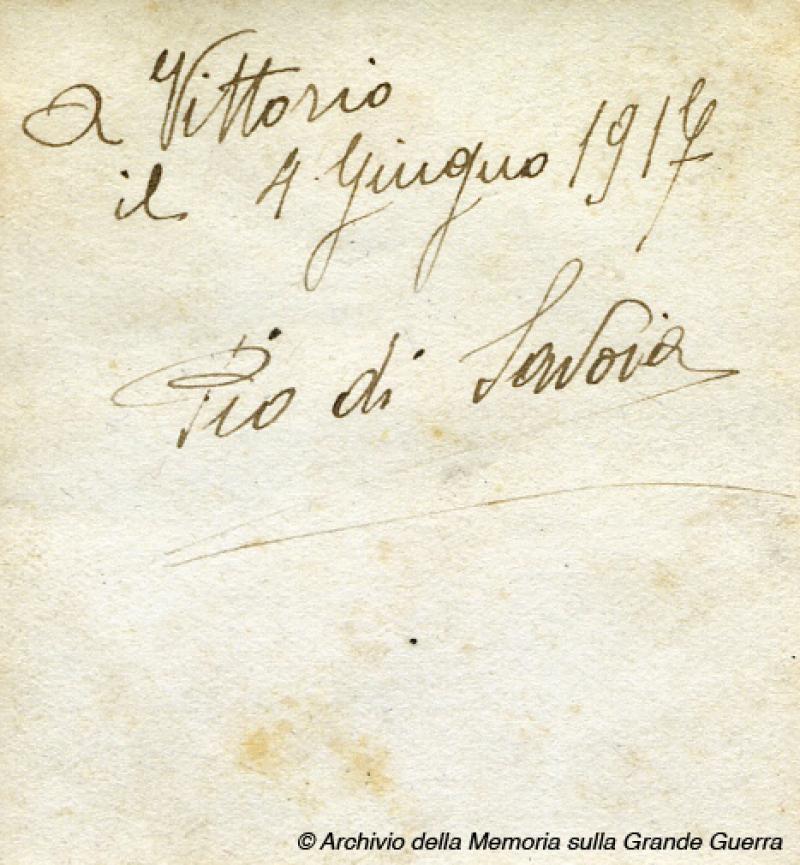 a Vittorio
il 4 Giugno 1917
Pio di Savoia
© Archivio della Memoria sulla Grande Guerra